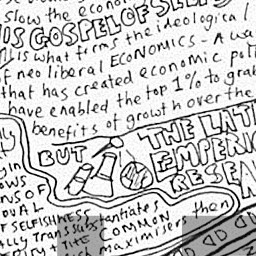 slow the econo
IS GOSPEL OF SELF
is what forms the ideological
of neo liberal ECONOMICS - A wa
that has created economic pol
have enabled the top 1% to grab
benefits of growth over the
BUT
THE LAT
EMPERIC
RESEA
OWS
NS OF
DUAL
F SELFISHNESS
then
ALLY Transsubstantiates
THE COMMON
maximiser